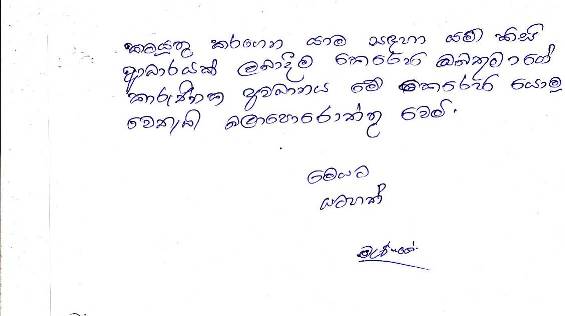 කටයුතු කරගෙන යාම සඳහා යම් කිසි
ආධාරයක් ලබාදීම කෙරෙහි ඔබතුමාගේ
කාරුණික අවධානය මේ කෙරෙහි යොමු
වෙතැයි බලාපොරොත්තු වෙමි.
මෙයට
යටහත්